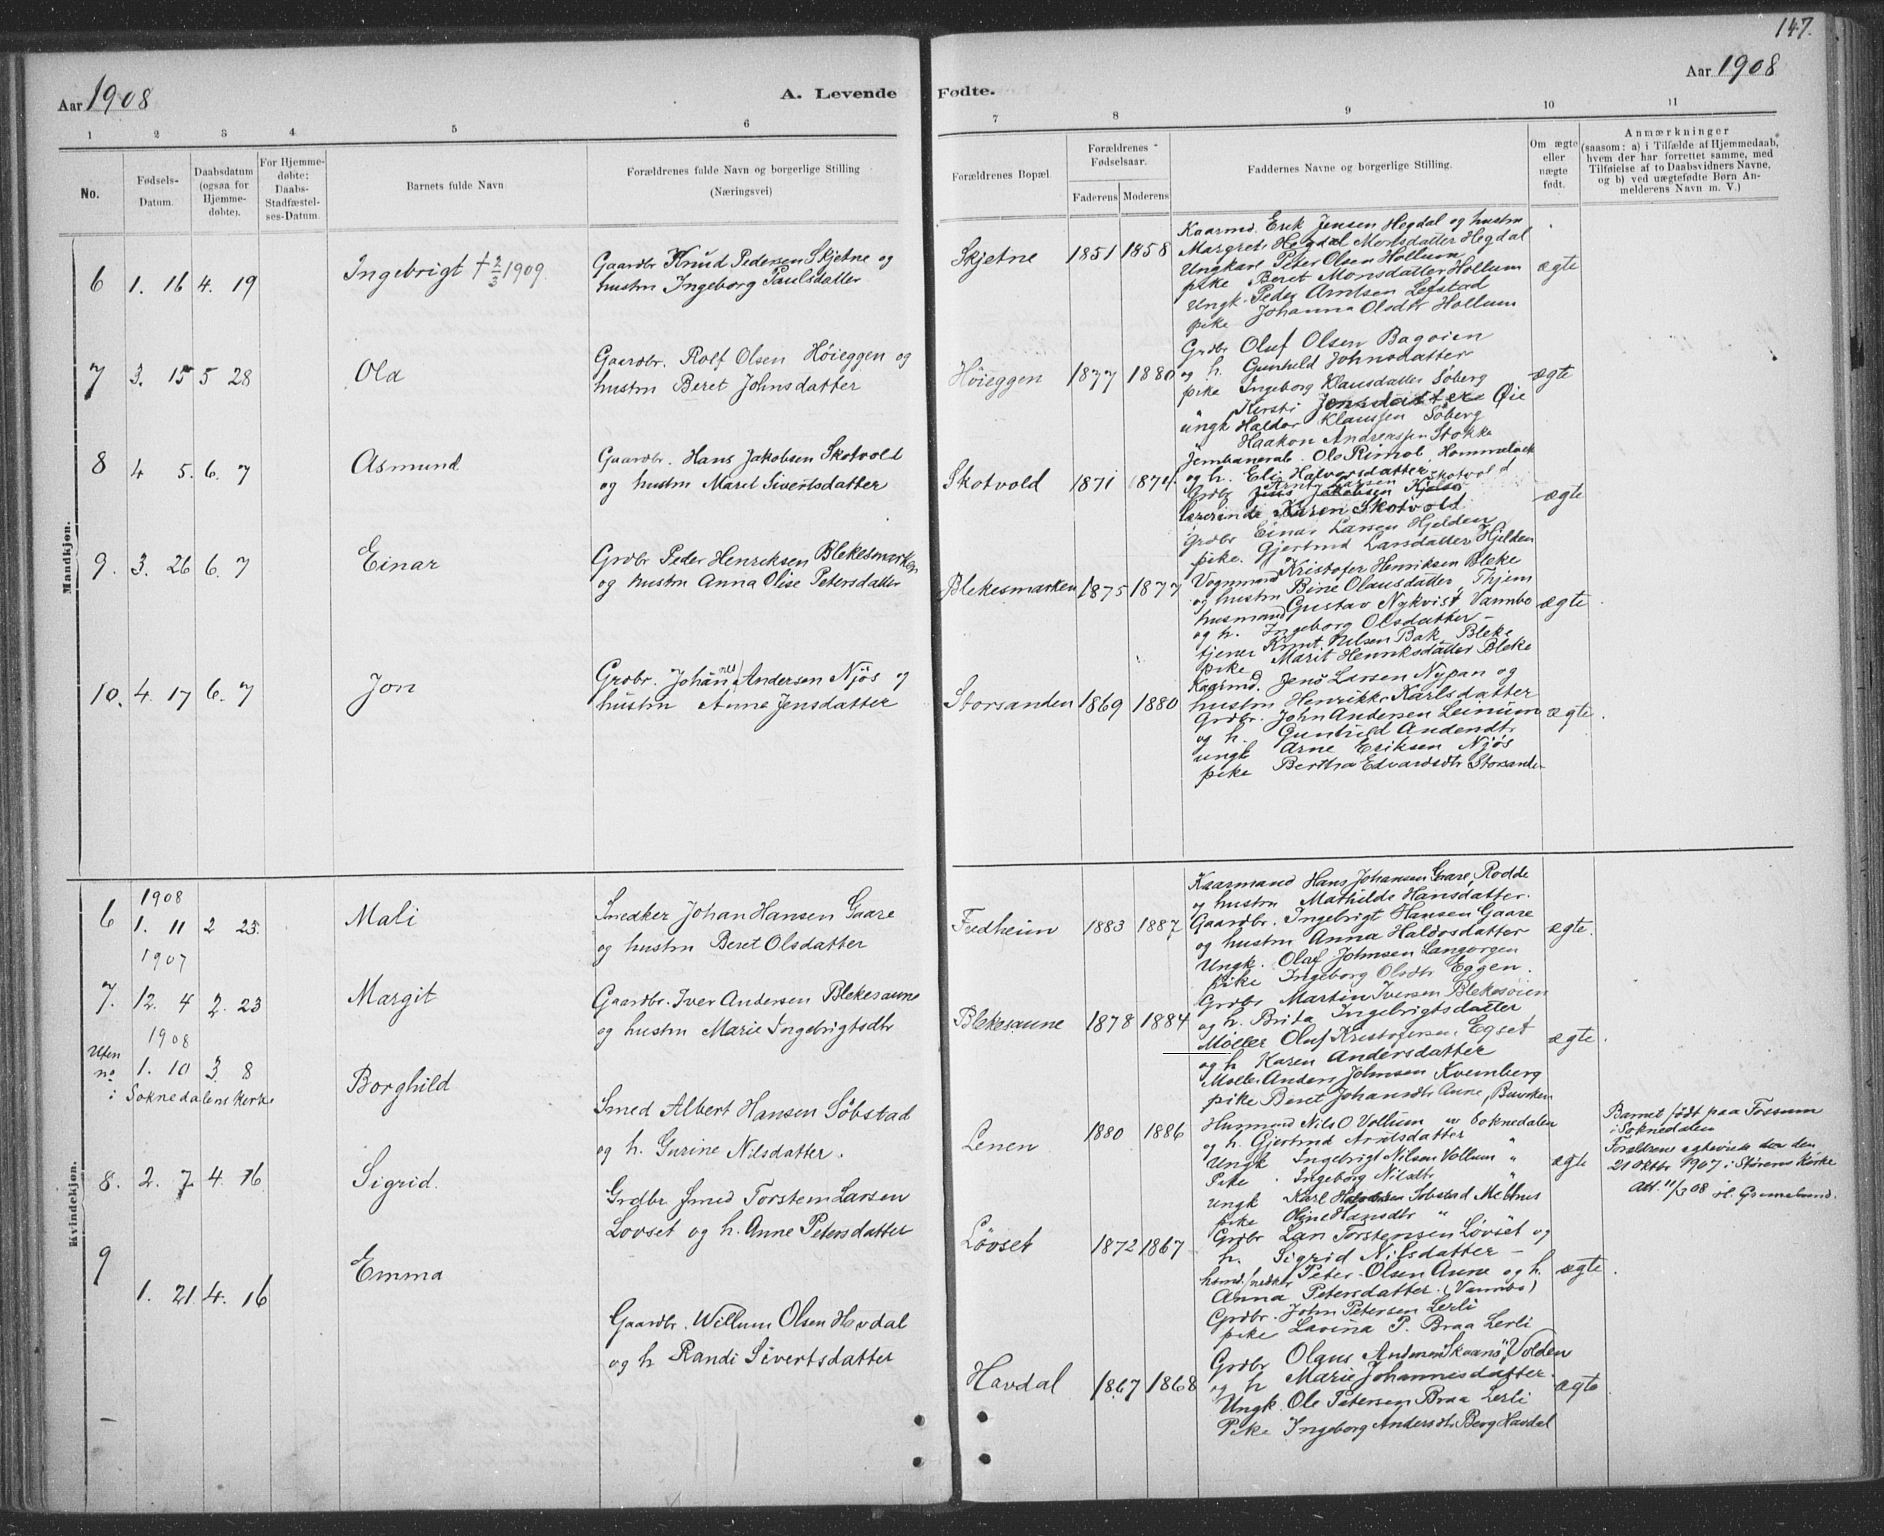 147.
Aar 1908
A. Levende Fødte.
Aar 1908
1 2 3 4 5 6 7 8 9 10 11
No.
Fødsels-Datum.
Daabsdatum (ogsaa for Hjemmedøbte).
For Hjemmedøbte: Daabs-Stadfæstelses-Datum.
Barnets fulde Navn
Forældrenes fulde Navn og borgerlige Stilling (Næringsvei)
Forældrenes Bopæl.
Forældrenes Fødselsaar.
Faderens Moderens
Faddernes Navne og borgerlige Stilling.
Om ægte eller nægte født.
Anmærkninger (saasom: a) i Tilfælde af Hjemmedaab, hvem der har forrettet samme, med Tilføielse af to Daabsvidners Navne, og b) ved uægtefødte Børn Anmelderens Navn m. V.)
Mandkjøn.
6 1. 16 4. 19 Ingebrigt † 2/3 1909.
Gaardbr Knud Pedersen Skjetne og
hustru Ingeborg Paulsdatter
Skjetne 1851 1858
Kaarmd. Erik Jensen Hegdal og hustru
Margrete Hegdal Monsdatter Hegdal
Ungkarl Peter Olsen Hollum
pike Beret Monsdatter Hollum
Ungk. Peder Arntsen Lefstad
pike Johanna Olsdtr Hollum
ægte
7 3. 15 5 28 Ola
Gaardbr. Rolf Olsen Höieggen og
hustru Beret Johnsdatter
Höieggen 1877 1880
Grdbr Oluf Olsen Bagøien
og h. Gunhild Johnsdatter
pike Ingeborg Klausdatter Søberg
Kersti Jonsdatter Øie
ungk Haldor Klaussen Søberg
Haakon Andreassen Stokke
ægte
8 4 5. 6. 7 Asmund
Gaardbr. Hans Jakobsen Skotvold
og hustru Marit Sivertsdatter
Skotvold 1871 1874
Jernbanearb. Ole Rimol, Hommelvik
og h. Eli Halvorsdatter
Grdbr Jens Jakobsen Skotvold
Lærerinde Karen Skotvold
Grdbr Einar Larsen Hjelden
pike. Gjertrud Larsdatter Hjelden
ægte
9. 3. 26 6. 7 Einar
Grdbr Peder Henriksen Blekesmarken
og hustru Anna Olise Petersdatter
Blekesmarken 1875 1877
Vognmand Kristofer Henriksen Bleke
og hustru Bine Olausdatter, Thjem
husmand Gustav Nykvist Vannbo
og h. Ingeborg Olsdatter
tjener Knut Nilsen Bak, Bleke
pike Marit Henriksdatter Bleke
ægte
10. 4. 17 6. 7 Jon
Grdbr. Johan Andersen Njös og
hustru Anne Jensdatter
Storsanden 1869 1880
Kaarmd. Jens Larsen Nypan og
hustru Henrikke Karlsdatter
Grdbr. John Andersen Leinum
og h. Gunhild Andersdtr
ungk Arne Eriksen Njös
pike Bertha Edvardsdtr Storsanden
ægte
Kvindekjøn.
6 1908 1. 11 2 23 Mali
Snedker Johan Hansen Gaare
og hustru Beret Olsdatter
Fredheim 1883 1887
Kaarmand Hans Johansen Gaare, Rodde
og hustru Mathilde Hansdatter.
Gaardbr. Ingebrigt Hansen Gaare
og hustru Anna Haldosdatter
Ungk. Olaf Johnsen Langørgen
pike Ingeborg Olsdtr Eggen.
ægte
7. 1907 12. 4 2. 23 Margit
Gaardbr. Iver Andersen Blekesaune
og hustru Marie Ingebrigtsdtr
Blekesaune 1878 1884
Grdbr Martin Iversen Blekesøien
og h. Brita Ingebrigtsdatter
Møller Oluf Kristofersen, Egset
og h Karen Andersdatter
Møller Anders Johnsen Kvernberg
pike Beret Johansdtr Aune,
ægte
Uten no 1908 1. 10 3. 8 Borghild
i Soknedalens Kirke
Smed Albert Hansen Söbstad
og h. Gurine Nilsdatter.
Lenen 1880 1886
Husmand Nils O Vollum Soknedalen
og h. Gjertrud Arntsdatter "
Ungk Ingebrigt Nilsen Vollum "
Pike Ingeborg Nilsdtr. "
Ungk Karl Hansen Söbstad Melhus
pike Oline Hansdtr "
ægte
Barnet født paa Fossum
i Soknedalen
Forældrene egteviede den
21 Oktbr 1907 i Størens Kirke
Att. 11/3 08
8. 2. 7. 4. 16 Sigrid.
Grdbr Smed Torsten Larsen
Lövset og h. Anne Petersdatter
Lövset 1872 1867
Grdbr Lars Torstensen Lövset og
h. Sigrid Nilsdatter
Peter Olsen Aune og h.
Anna Petersdatter. (Vannbo)
Grdbr. John Petersen Lerli
pike Lavina P. Braa Lerli
ægte
9 1. 21 4. 16 Emma
Gaardbr. Willum Olsen Havdal
og h Randi Sivertsdatter
Havdal 1867 1868
Grdbr Olaus Andersen Volden
og h Marie Johannesdatter.
Ungk. Ole Petersen Braa Lerli
Pike Ingeborg Andersdtr Berg Havdal
ægte